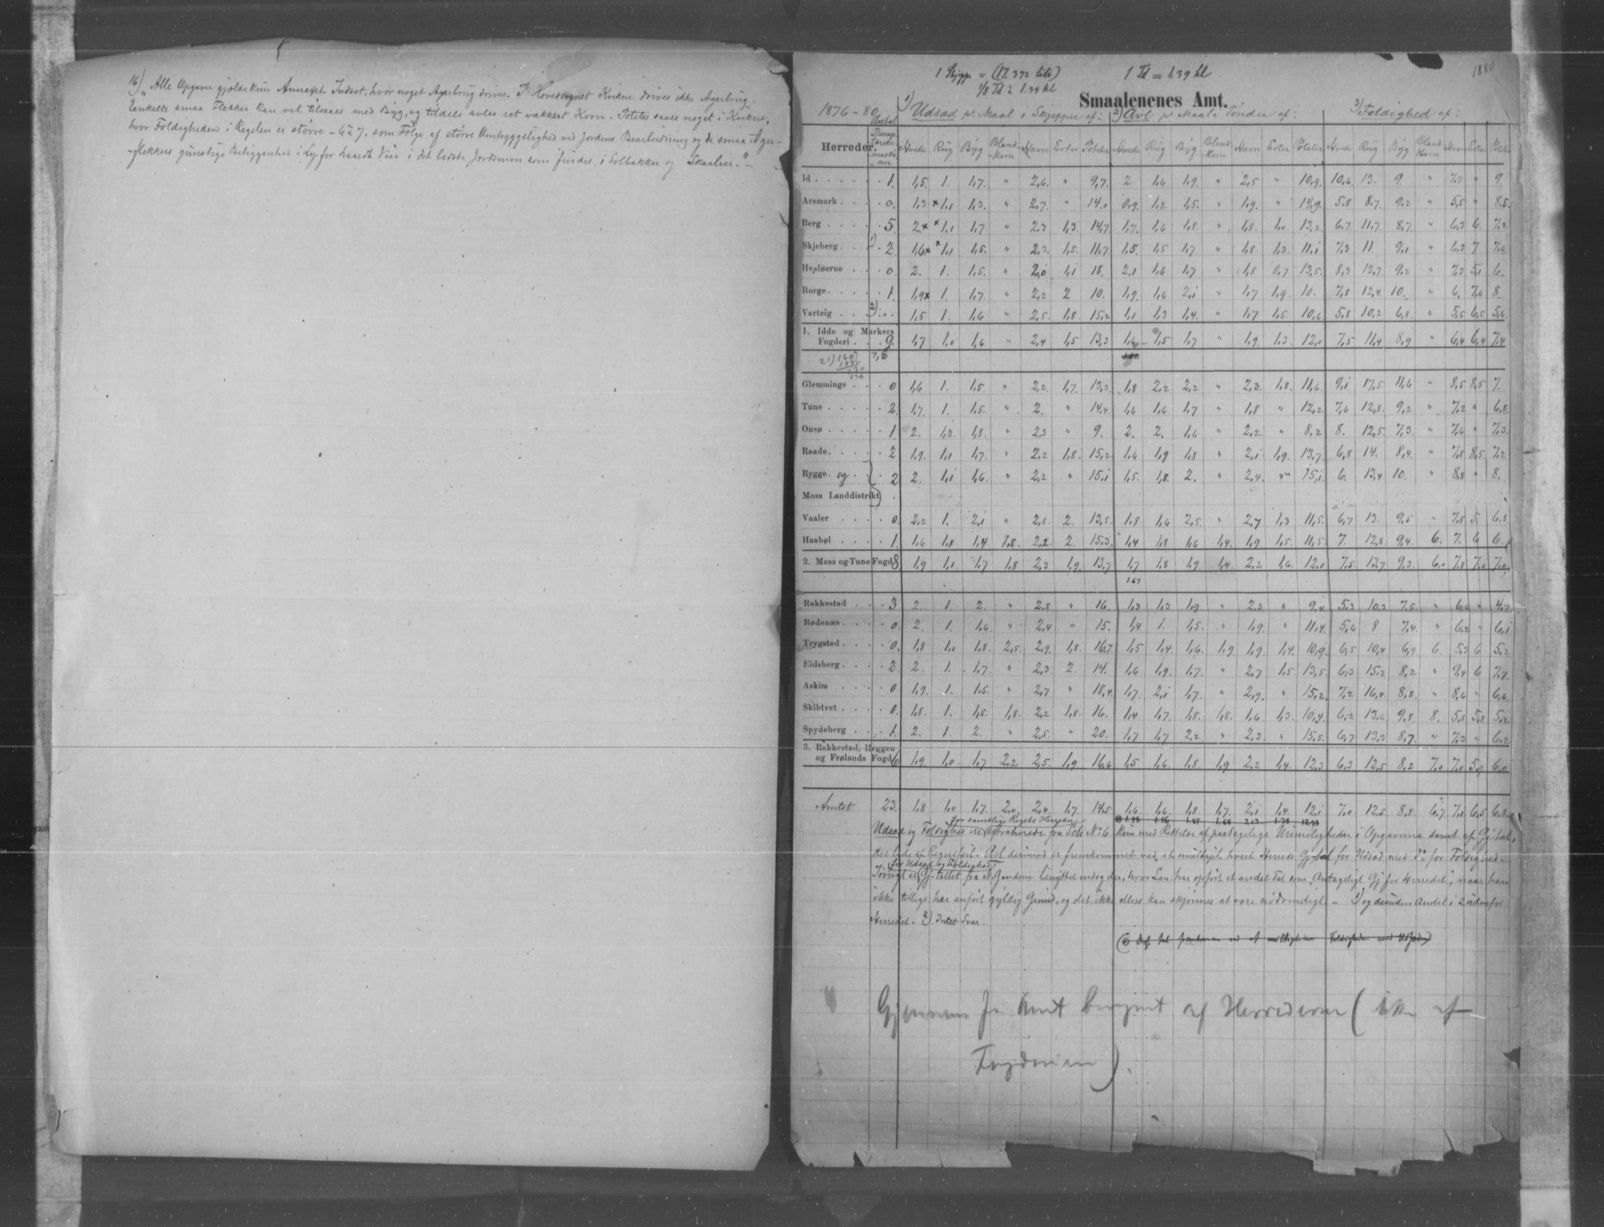 16) "Alle Opgaver gjælde kun Annexet Indset, hvor noget Agerbrug drives. I Hovedsognet Kvikne drives ikke Agerbrug.
Enkelte smaa Flekker kan vel tilsaaes med Byg, og tildels avles set vakkert Korn. Potetes saaes noget i Kvikne,
hvor Foldigheden i Regelen er större - 6 à 7, som Følge af större Omhyggelighed ved Jordens Bearbeidning og de smaa Ager-
flekkers gunstige Beliggenhed i Ly for haarde Veir i det bedste Jordsmon som findes, i Solbakker og Skaalier."
1880
1 Skjeppe = (17.372 liter) 1 Td = 1,39 hl
1/8 Td = 1.39 hl
Smaalenenes Amt.
1876-80 Antal 1) Udsæd pr. Maal i Skjepper af: 2) Avl pr Maal i Tønder af: 3) Foldighed af:
Herreder. Damp-tærske-maski-ner Hvede Rug Byg Bland-korn Havre Erter Poteter Hvede Rug Byg Bland-korn Havre Erter Poteter Hvede Rug Byg Bland Korn Havre Erter Poteter
Id 1. 1,5. 1. 1,7. " 2,6. " 9,7. 2 1,6 1,9. " 2,5 " 10,9. 10,6. 13. 9. " 7,7 " 9.
Aremark 0. 1,3 × 1,1 1,3. " 2,7. " 14.0 0,9. 1,2 1,5. " 1,9. " 14,9. 5,8 8,7. 9,2 " 5,5 " 8,5.
Berg 5. 2× ×1,1 1,7 " 2,3 1,3 14,7. 1,7. 1,6 1,8. " 1,8. 1,0 13,2. 6,7. 11,7. 8,7. " 6,3 6. 7,2
Skjeberg 1) 2 1,6× ×1,1 1,5. " 2,3. 1,5. 11,7. 1,5. 1,5 1,7. " 1,8. 1,3. 11,1 7,3 11. 9,1 " 6,3 7 7,6
Hvaløerne 0. 2. 1. 1,5. " 2,0 1,1 18. 2,1 1,6 1,7 " 1,8 0,7 13,5. 8,3 12,7. 9,2 " 7,3 5,1 6.
Borge 1. 1,9× 1. 1,7. " 2,2 2 10. 1,9. 1,6 2,1 " 1,7 1,9. 10. 7,8 12,4. 10. " 6. 7,6 8.
Varteig 2) " 1,5 1. 1,6 " 2,5. 1,8. 15,2 1,1 1,3 1,4. " 1,7 1,5 10,6 5,8 10,2 6,8 " 5,5 6,5 5,6
1. Idde og Markers
Fogderi 9. 1,7 1,0 1,6 " 2,4 1,5 13,3 1,6 1,5 1,7 " 1,9. 1,3. 12,0 7,5 11,4 8,9 " 6,4 6,4 7,4
Glemminge 0 1,6 1. 1,5 " 2,2. 1,7. 13,3. 1,8 2,2 2,2 " 2,2. 1,8. 11,6. 9,1 17,5 11,6 " 8,5 8,5 7.
Tune 2. 1,7. 1. 1,5. " 2. " 14,4. 1,6 1,6. 1,7 " 1,8 " 12,2. 7,6 12,8. 9,2 " 7,2 " 6,8.
Onsø 1. 2. 1,3. 1,8. " 2,3 " 9. 2. 2. 1,6 " 2,2 " 8,2 8. 12,5. 7,3 " 7,6 " 7,3.
Raade 2 1,9. 1,1 1,7. " 2,2 1,8. 15,2 1,6 1,9 1,8 " 2,1 1,9. 13,7. 6,8 14. 8,4. " 7,8 8,5 7,2
Rygge og 2 2. 1,1 1,6. " 2,2 " 15,1 1,5. 1,8. 2. " 2,4. " 15,1 6. 13,4 10. " 8,8 " 8.
Moss Landdistrikt
Vaaler 0. 2,2 1. 2,1 " 2,8. 2. 13,5. 1,8 1,6 2,5. " 2,7 1,3 11,5. 6,7 13. 9,5 " 7,8 5. 6,8
Haabøl 1. 1,6 1,1 1,4 1,8. 2,2 2. 15,3. 1,4 1,8 1,6 1,4. 1,9 1,5. 11,5 7. 12,8 9,4 6. 7. 6 6.
2. Moss og Tune Fogd. 8 1,9 1,1 1,7 1,8 2,3 1,9. 13,7 1,7 1,8 1,9. 1,4 2,2 1,6. 12,0 7,5 13,7 9,3 6,0 7,8 7,0 7,0
1.67
Rakkestad 3 2. 1. 2. " 2,8 " 16. 1,3 1,3 1,9 " 2,3. " 9,4 5,3 10,3 7,5. " 6,6 " 4,7
Rødenæs 0. 2. 1. 1,6. " 2,4 " 15. 1,4 1. 1,5. " 1,9. " 11,4. 5,6 8 7,4. " 6,2 " 6,1
Trygstad 0. 1,8 1,0 1,8. 2,5. 2,9. 1,8. 16,7 1,5 1,4. 1,6. 1,9 1,9. 1,4. 10,9. 6,5 10,4 6,9 6. 5,3 6 5,2
Eidsberg 2. 2. 1. 1,7. " 2,3 2. 14. 1,6 1,9. 1,7. " 2,7 1,5 13,5. 6,3 15,2 8,2 " 9,4 6 7,7
Askim 0 1,9. 1. 1,5. " 2,7 " 18,4. 1,7. 2,1 1,7. " 2,9. " 15,2. 7,2 16,4 8,8 " 8,6 " 6,6
Skibtvet 0. 1,8. 1. 1,5. 1,8. 2,2 1,8. 16. 1,4 1,7. 1,8. 1,8. 1,6 1,3. 10,4. 6,2 13,6 9,8 8. 5,8 5,8 5,2
Spydeberg 1. 2. 1. 2. " 2,5. " 20. 1,7 1,7 2,2 " 2,3. " 15,5. 6,7 13,3 8,7. " 7,3 " 6,2
3. Rakkestad, Heggen
og Frølands Fogd. 6 1,9. 1,0. 1,7 2,2 2,5. 1,9 16,6 1,5 1,6. 1,8. 1,9 2,2 1,4. 12,3 6,3 12,5 8,2 7,0 7,0 5,9 6,0
Amtet 23. 1,8 1,0 1,7 2,0 2,4 1,7. 14,5 1,6. 1,6. 1,8 1,7. 2,1 1,4. 12,1 7,0 12,5 8,8 6,7 7,1 6,5 6,8
for samtlige Rigets Herreder
Udsæd og Foldighed re abstraherede fra Sch. No 6, kun med Rettelse af paatagelige Urimeligheder i Opgaverne samt af Gj. tal,
der lyde a Regnefeil. Avl derimod er fremkommet ved at multiplic. hvert Herreds Gj. tal for Udsæd med do for Foldighed.
for Udsæd og Foldighed
Forøvrigt er Gj. tallet fra Sch. Gaardene benyttet undtagen, hvor Len. har opført et andet Tal som "Antageligt Gj. for Herredet", naar han
ikke tillige har anført gyldig Grund, og det ikke ellers kan skjønnes at være nødvendigt. - 1) og desuden Andel i 2 udenfor
Herredet. 2) Intet Svar.
Gjennem for Amt beregnet af Herrederne (ikke af
Fogderierne).